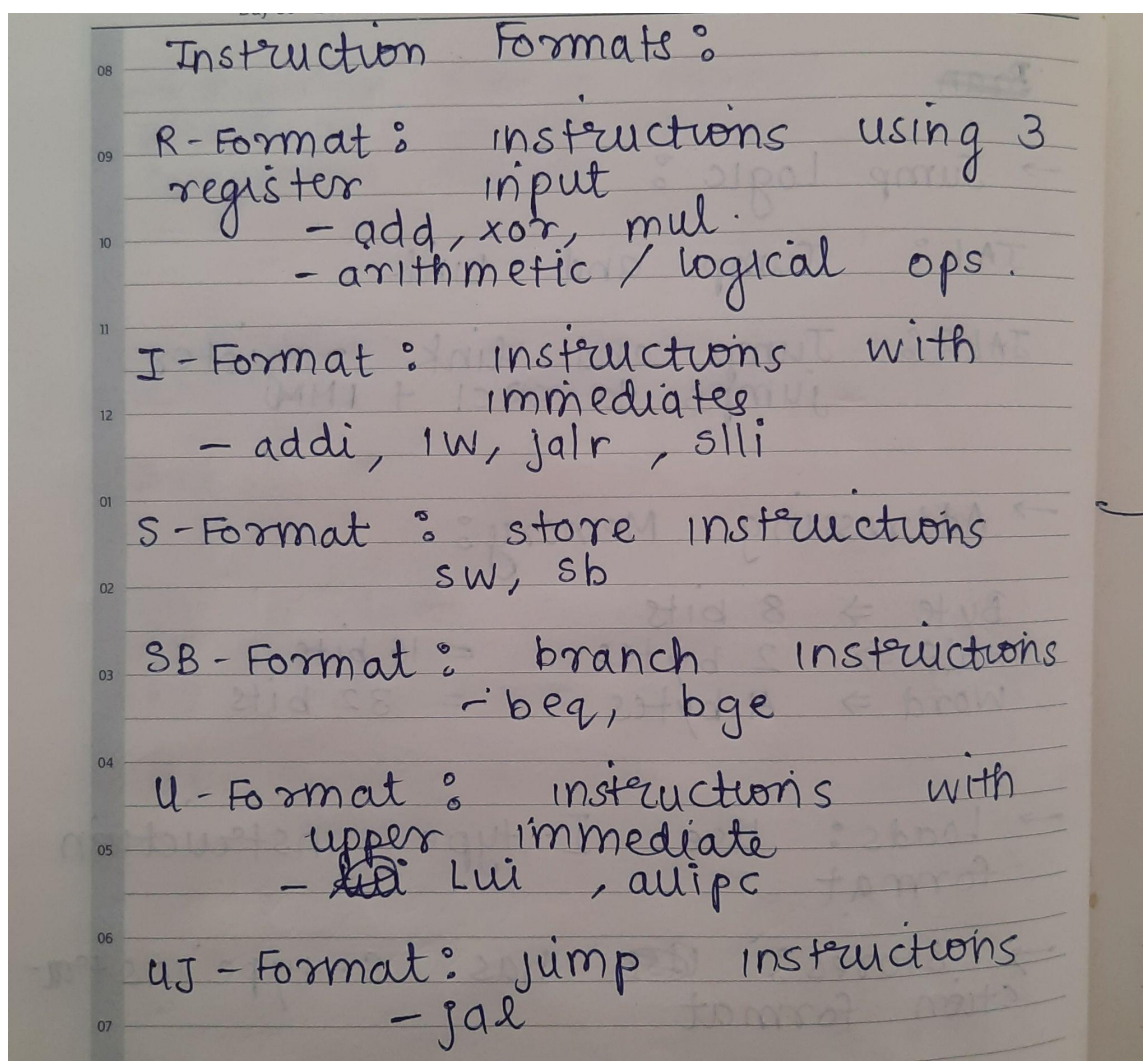 Instruction Formats:
08
R-Format: instructions using 3
09
register input
- add, xor, mul.
10
- arithmetic / logical ops.
11
I-Format: instructions with
immediates
12
- addi, lw, jalr, slli
01
S-Format: store instructions
sw, sb
02
SB-Format: branch instructions
03
- beq, bge
04
U-Format: instructions with
upper immediate
05
- Lui, auipc
06
UJ-Format: jump instructions
- jal
07